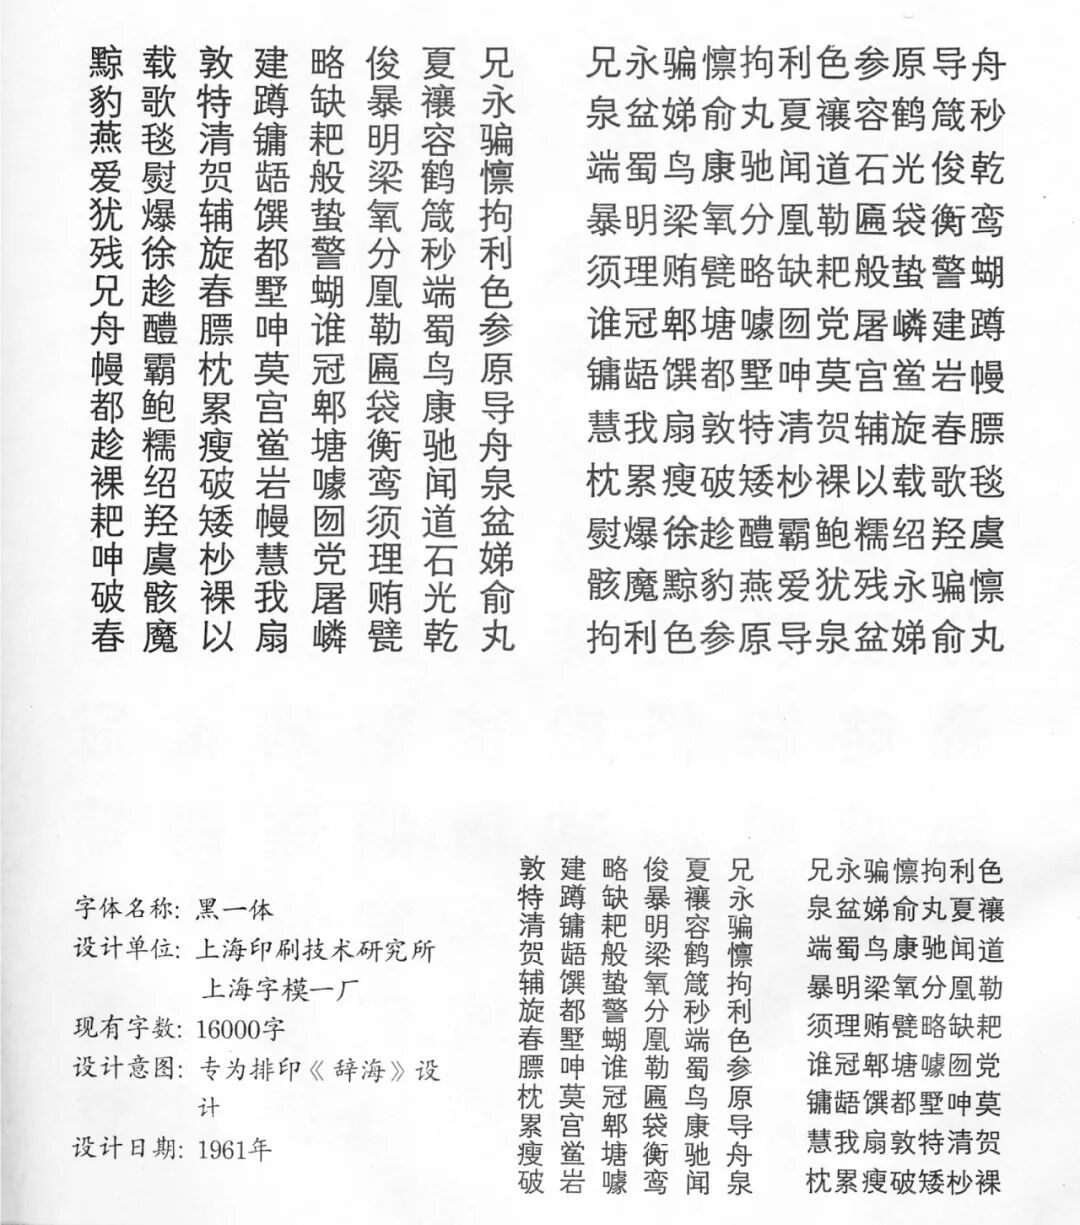 兄永骗懔拘利色参原导舟泉盆娣俞丸
夏禳容鹤箴秒端蜀鸟康驰闻道石光乾
俊暴明梁氧分凰勒匾袋衡鸾须理贿甓
略缺耙般蛰警蝴谁冠郫塘噱囫党屠嶙
建蹲镛龉馔都墅呻莫宫鲎岩幔慧我扇
敦特清贺辅旋春膘枕累瘦破矮杪裸以
载歌毯熨爆徐趁醴霸鲍糯绍羟虞骸魔
黥豹燕爱犹残兄舟幔都趁裸耙呻破春
兄永骗懔拘利色参原导舟
泉盆娣俞丸夏禳容鹤箴秒
端蜀鸟康驰闻道石光俊乾
暴明梁氧分凰勒匾袋衡鸾
须理贿甓略缺耙般蛰警蝴
谁冠郫塘噱囫党屠嶙建蹲
镛龉馔都墅呻莫宫鲎岩幔
慧我扇敦特清贺辅旋春膘
枕累瘦破矮杪裸以载歌毯
熨爆徐趁醴霸鲍糯绍羟虞
骸魔黥豹燕爱犹残永骗懔
拘利色参原导泉盆娣俞丸
字体名称: 黑一体
设计单位: 上海印刷技术研究所
上海字模一厂
现有字数: 16000字
设计意图: 专为排印《辞海》设
计
设计日期: 1961年
兄永骗懔拘利色参原导舟泉
夏禳容鹤箴秒端蜀鸟康驰闻
俊暴明梁氧分凰勒匾袋衡鸾
略缺耙般蛰警蝴谁冠郫塘噱
建蹲镛龉馔都墅呻莫宫鲎岩
敦特清贺辅旋春膘枕累瘦破
兄永骗懔拘利色
泉盆娣俞丸夏禳
端蜀鸟康驰闻道
暴明梁氧分凰勒
须理贿甓略缺耙
谁冠郫塘噱囫党
镛龉馔都墅呻莫
慧我扇敦特清贺
枕累瘦破矮杪裸